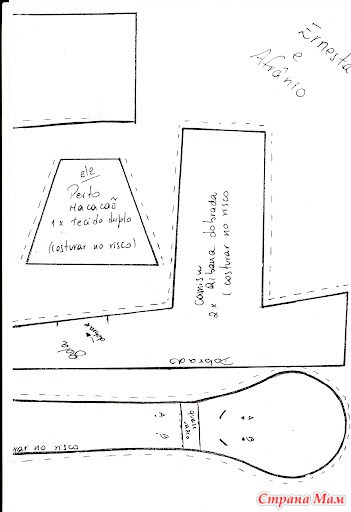 Ernesta
e
Afrânio
ele
Peito
Macacão
1 x Tecido duplo
(costurar no risco)
Camisa
2 x Ribana dobrada
(costurar no risco)
dobrar
Dobrado
A
B
A
B
no risco
Страна Мам